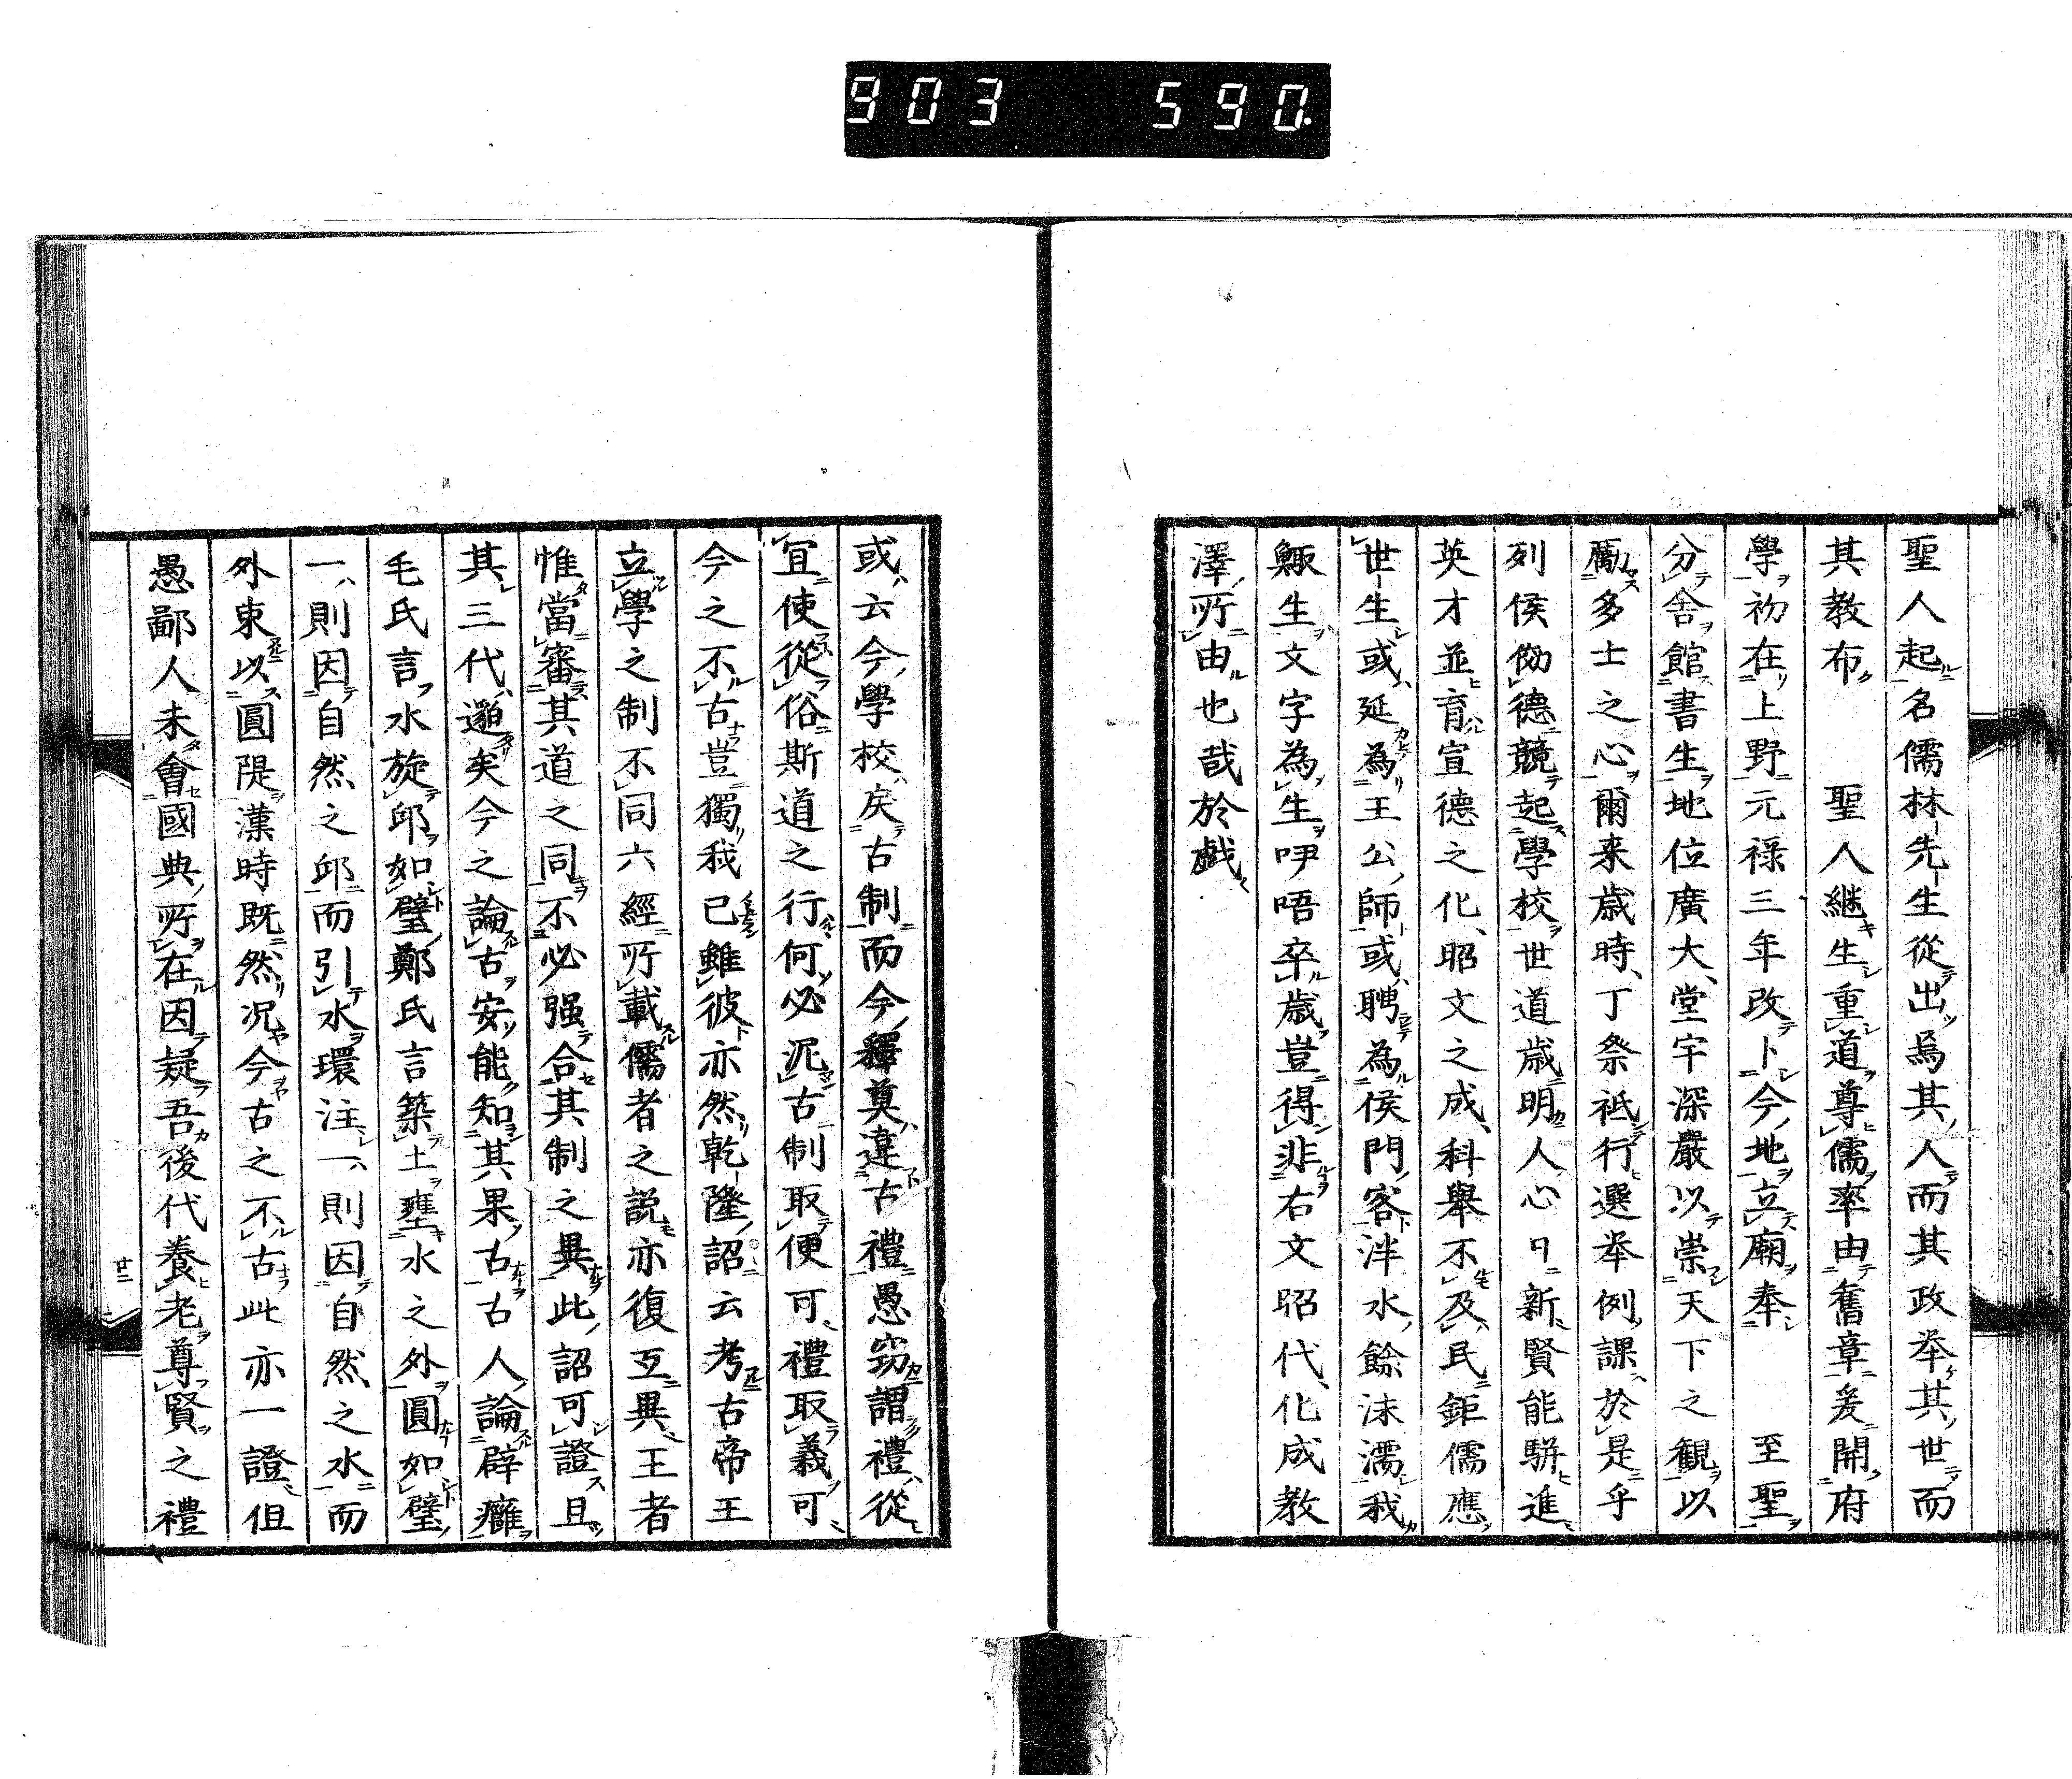 903 590.
聖人起名儒林先生從出焉其人而其政举其世而
其教布　　聖人継生重道尊儒率由舊章爰開府
學初在上野元禄三年改卜今地立廟奉　　至聖
分舎館書生地位廣大堂宇深嚴以崇天下之観以
勵多士之心爾来歳時丁祭祗行選举例課於是乎
列侯傚德競起學校世道歳明人心日新賢能駢進
英才並育宣德之化昭文之成科舉不及民鉅儒應
世生或延為王公師或聘為侯門客泮水餘沫濡我
鯫生文字為生吚唔卒歳豈得非右文昭代化成教
澤所由也哉於戲
或云今學校戻古制而今釋奠違古禮愚窃謂禮從
宜使從俗斯道之行何必泥古制取便可禮取義可
今之不古豈獨我已雖彼亦然乾隆詔云考古帝王
立學之制不同六經所載儒者之説亦復互異王者
惟當審其道之同不必强合其制之異此詔可證且
其三代邈矣今之論古安能知其果古古人論辟癰
毛氏言水旋邱如璧鄭氏言築土壅水之外圓如璧
一則因自然之邱而引水環注一則因自然之水而
外東以圓隄漢時既然况今古之不古此亦一證但
愚鄙人未會國典所在因疑吾後代養老尊賢之禮
廿二